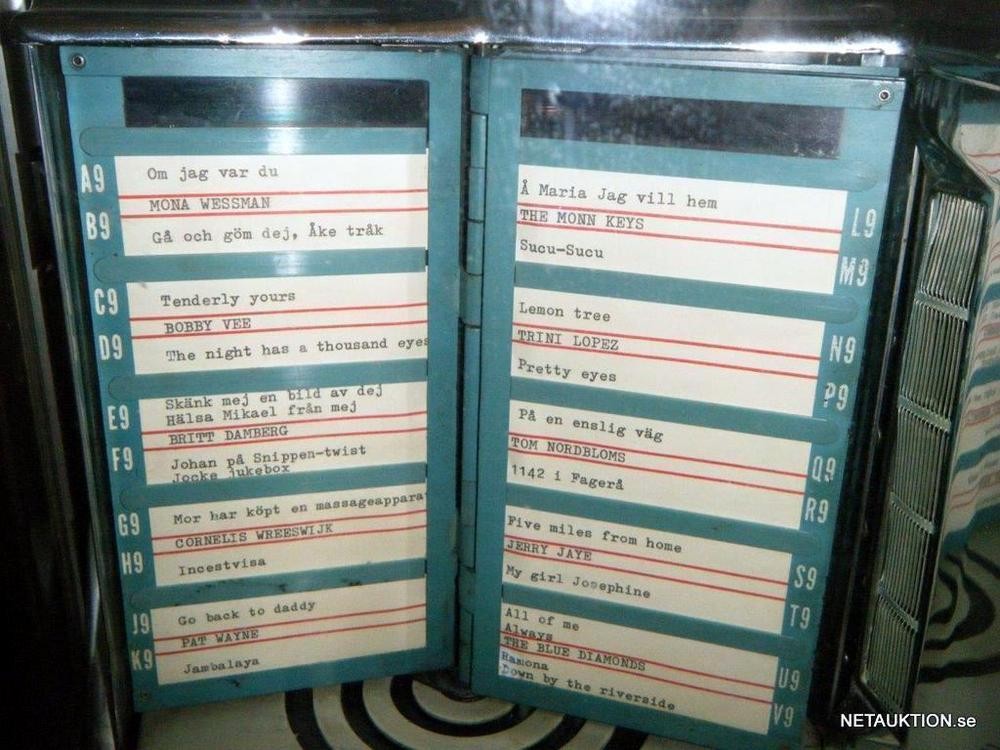 A9
Om jag var du
MONA WESSMAN
B9
Gå och göm dej, Åke tråk
C9
Tenderly yours
BOBBY VEE
D9
The night has a thousand eyes
E9
Skänk mej en bild av dej
Hälsa Mikael från mej
BRITT DAMBERG
F9
Johan på Snippen-twist
Jocke jukebox
G9
Mor har köpt en massageappara
CORNELIS WREESWIJK
H9
Incestvisa
J9
Go back to daddy
PAT WAYNE
K9
Jambalaya
Å Maria Jag vill hem
L9
THE MONN KEYS
Sucu-Sucu
M9
Lemon tree
N9
TRINI LOPEZ
Pretty eyes
P9
På en enslig väg
TOM NORDBLOMS
Q9
1142 i Fagerå
R9
Five miles from home
JERRY JAYE
S9
My girl Josephine
T9
All of me
Always
THE BLUE DIAMONDS
U9
Ramona
Down by the riverside
V9
NETAUKTION.se